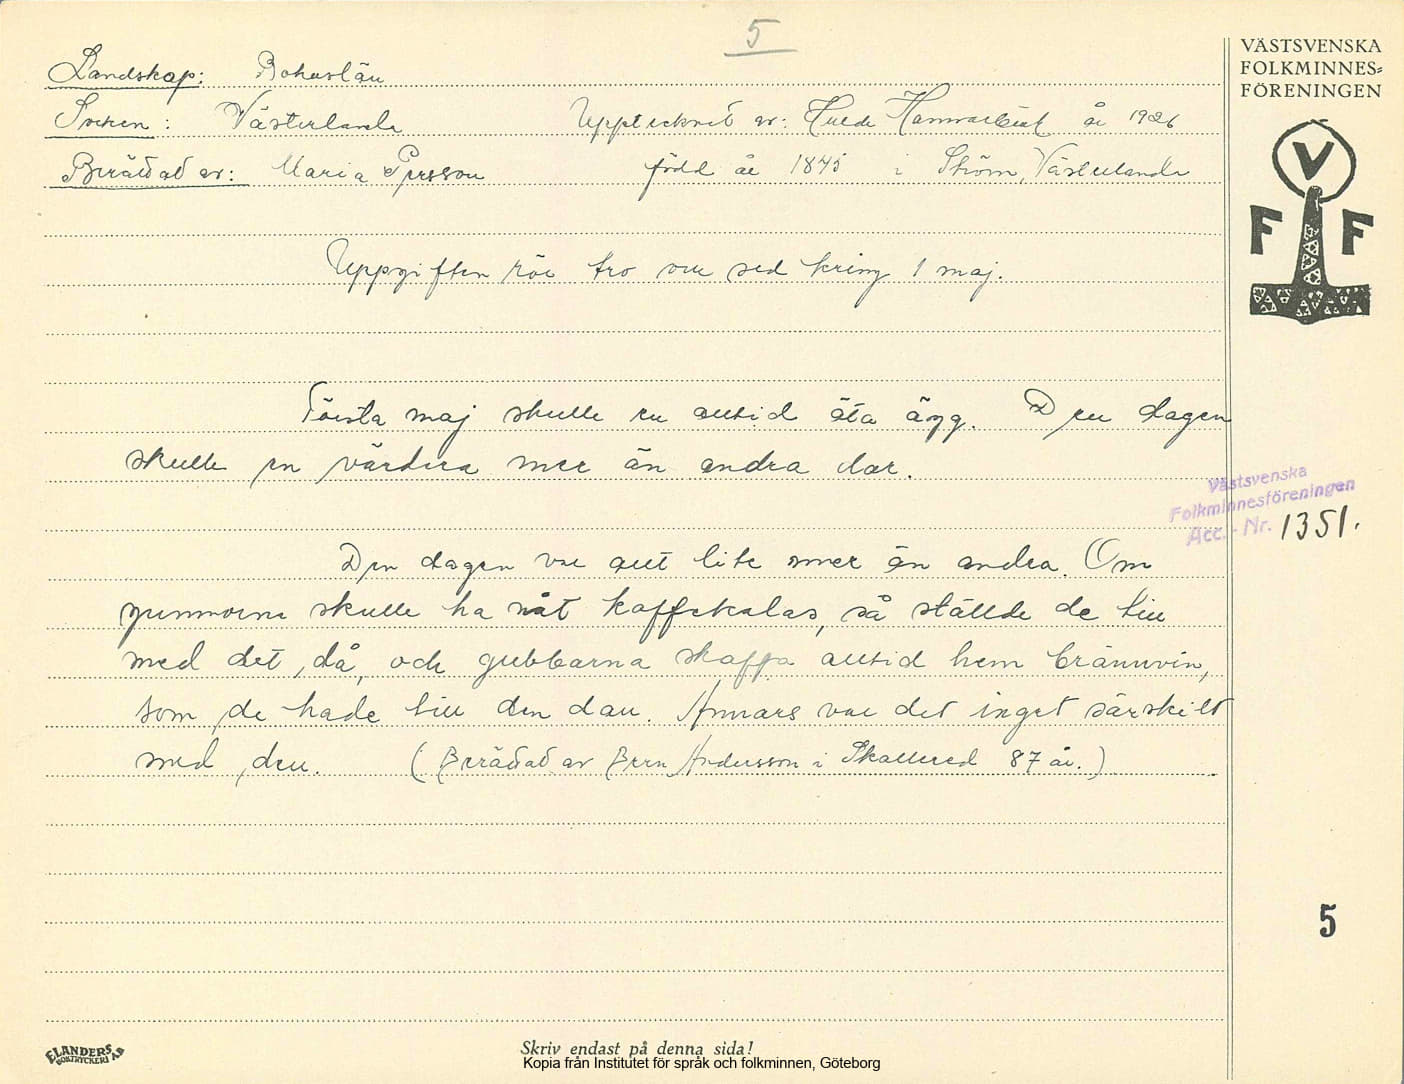 5
VÄSTSVENSKA
FOLKMINNES=
FÖRENINGEN
Landskap: Bohuslän
Socken: Västerlanda Upptecknat av: Hulda Hammarbäck år 1926
Berättat av: Maria Persson född år 1845 i Ström, Västerlanda
V
F F
Uppgiften rör tro och sed kring 1 maj.
Första maj skulle en alltid äta ägg. Den dagen
skulle en värdera mer än andra dar.
Västsvenska
Folkminnesföreningen
Acc. - Nr. 1351.
Den dagen var allt lite mer än andra. Om
gummorna skulle ha nåt kaffekalas, så ställde de till
med det då, och gubbarna skaffa alltid hem brännvin,
som de hade till den dan. Annars var det inget särskilt
med den. (Berättat av Andersson i Skallered 87 år.)
5
ELANDERS
BOKTRYCKERI AB
Skriv endast på denna sida!
Kopia från Institutet för språk och folkminnen, Göteborg